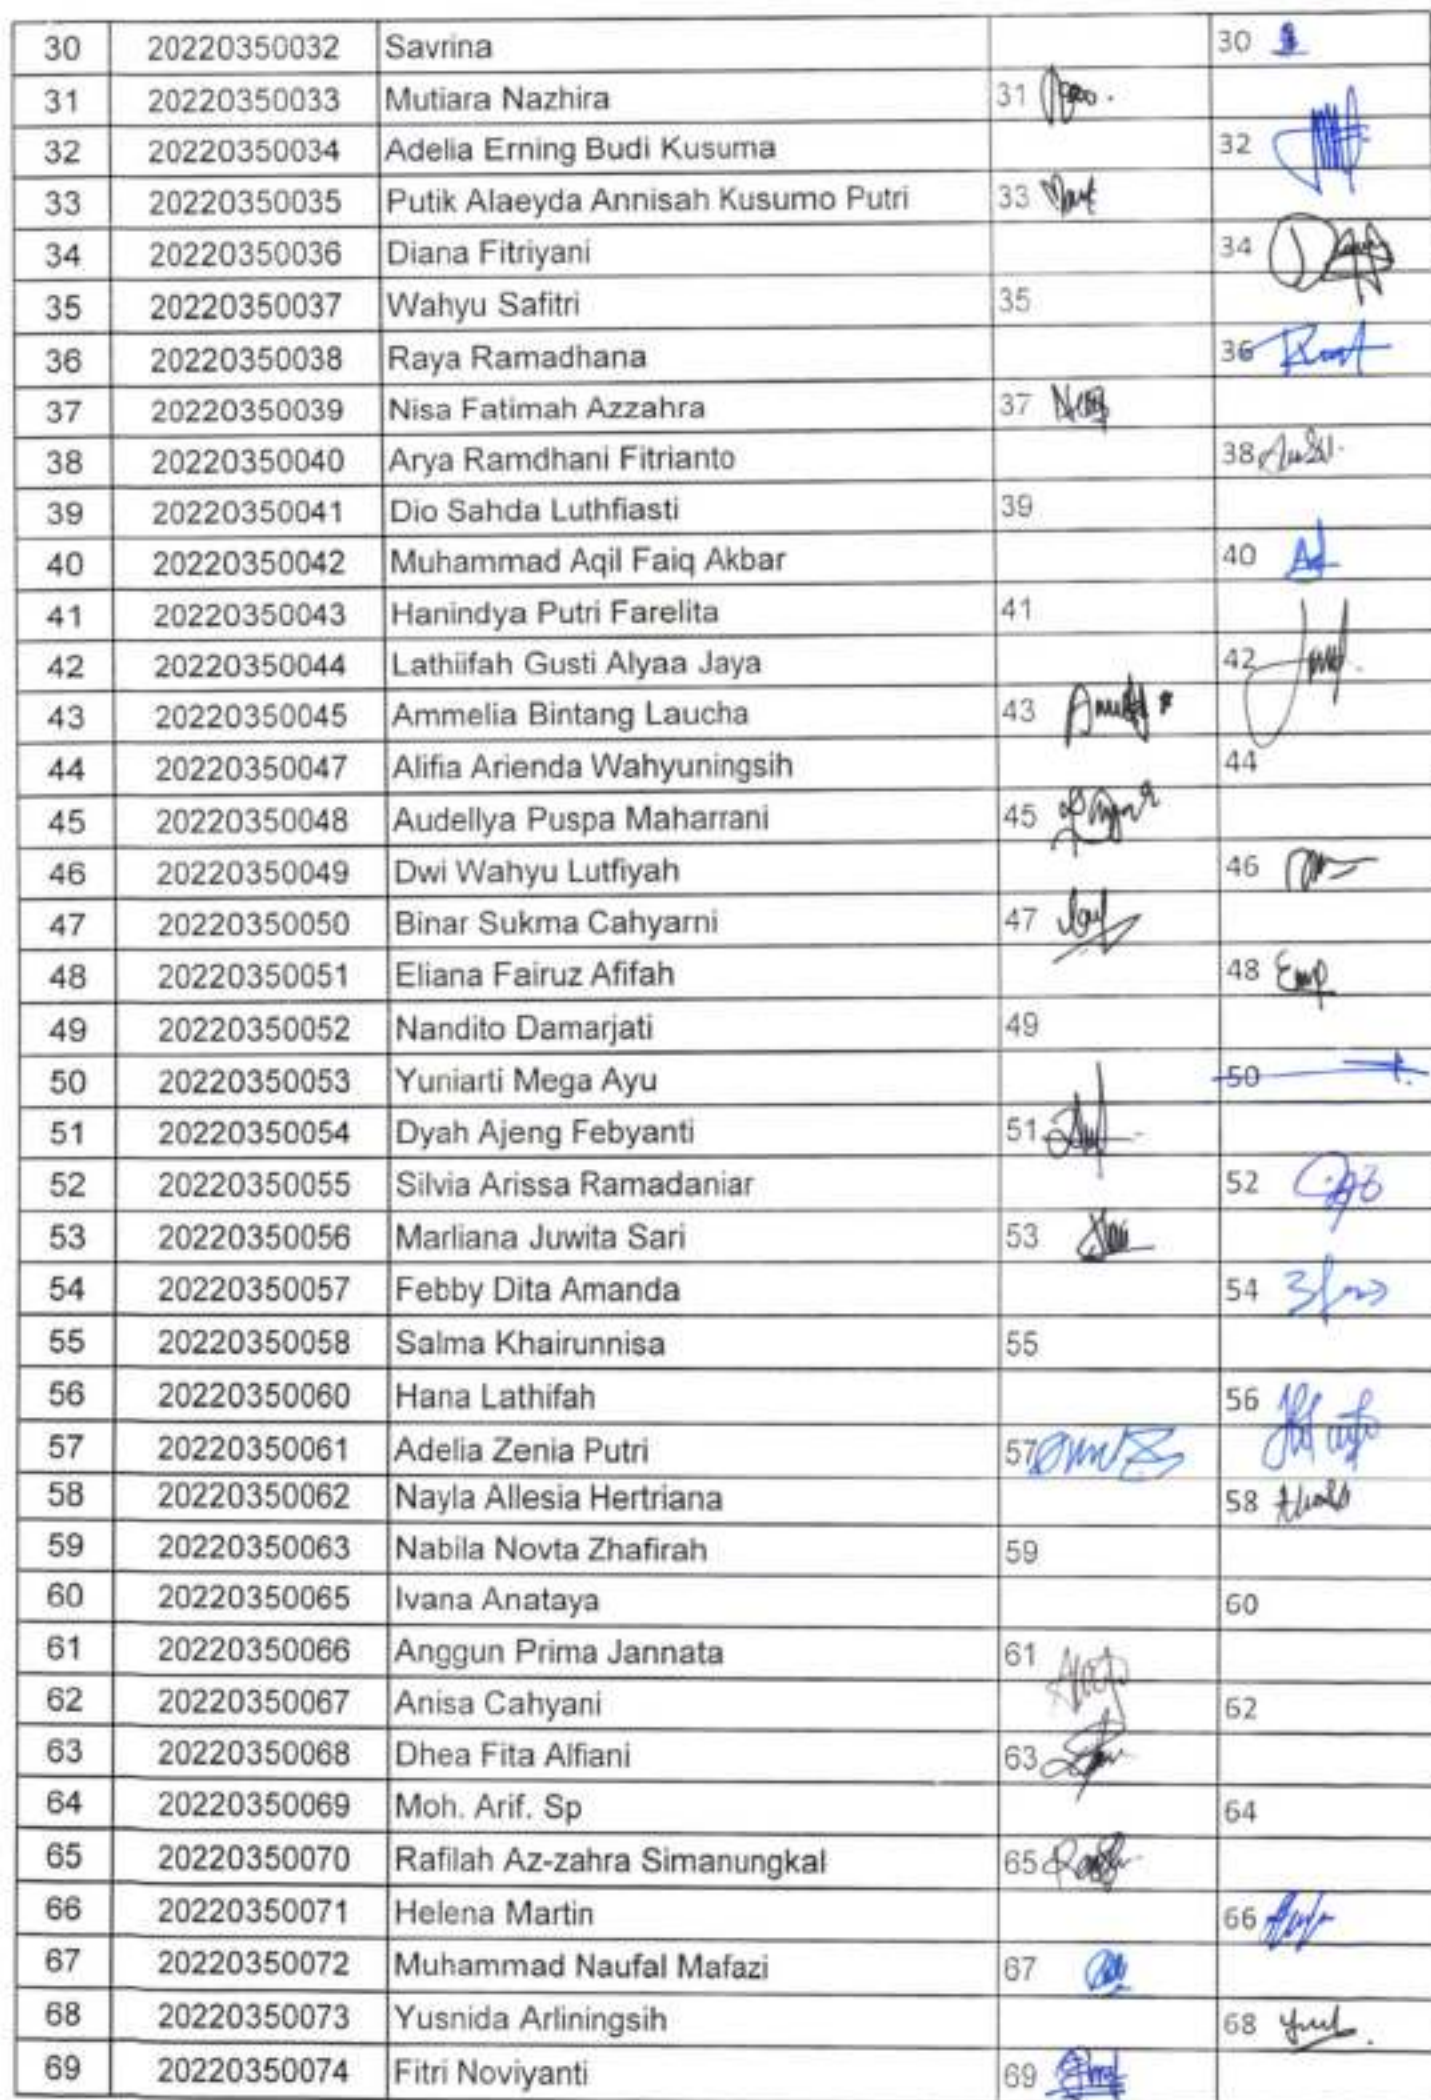 30 20220350032 Savrina 30
31 20220350033 Mutiara Nazhira 31
32 20220350034 Adelia Erning Budi Kusuma 32
33 20220350035 Putik Alaeyda Annisah Kusumo Putri 33
34 20220350036 Diana Fitriyani 34
35 20220350037 Wahyu Safitri 35
36 20220350038 Raya Ramadhana 36
37 20220350039 Nisa Fatimah Azzahra 37
38 20220350040 Arya Ramdhani Fitrianto 38
39 20220350041 Dio Sahda Luthfiasti 39
40 20220350042 Muhammad Aqil Faiq Akbar 40
41 20220350043 Hanindya Putri Farelita 41
42 20220350044 Lathiifah Gusti Alyaa Jaya 42
43 20220350045 Ammelia Bintang Laucha 43
44 20220350047 Alifia Arienda Wahyuningsih 44
45 20220350048 Audellya Puspa Maharrani 45
46 20220350049 Dwi Wahyu Lutfiyah 46
47 20220350050 Binar Sukma Cahyarni 47
48 20220350051 Eliana Fairuz Afifah 48
49 20220350052 Nandito Damarjati 49
50 20220350053 Yuniarti Mega Ayu 50
51 20220350054 Dyah Ajeng Febyanti 51
52 20220350055 Silvia Arissa Ramadaniar 52
53 20220350056 Marliana Juwita Sari 53
54 20220350057 Febby Dita Amanda 54
55 20220350058 Salma Khairunnisa 55
56 20220350060 Hana Lathifah 56
57 20220350061 Adelia Zenia Putri 57
58 20220350062 Nayla Allesia Hertriana 58
59 20220350063 Nabila Novta Zhafirah 59
60 20220350065 Ivana Anataya 60
61 20220350066 Anggun Prima Jannata 61
62 20220350067 Anisa Cahyani 62
63 20220350068 Dhea Fita Alfiani 63
64 20220350069 Moh. Arif. Sp 64
65 20220350070 Rafilah Az-zahra Simanungkal 65
66 20220350071 Helena Martin 66
67 20220350072 Muhammad Naufal Mafazi 67
68 20220350073 Yusnida Arliningsih 68
69 20220350074 Fitri Noviyanti 69